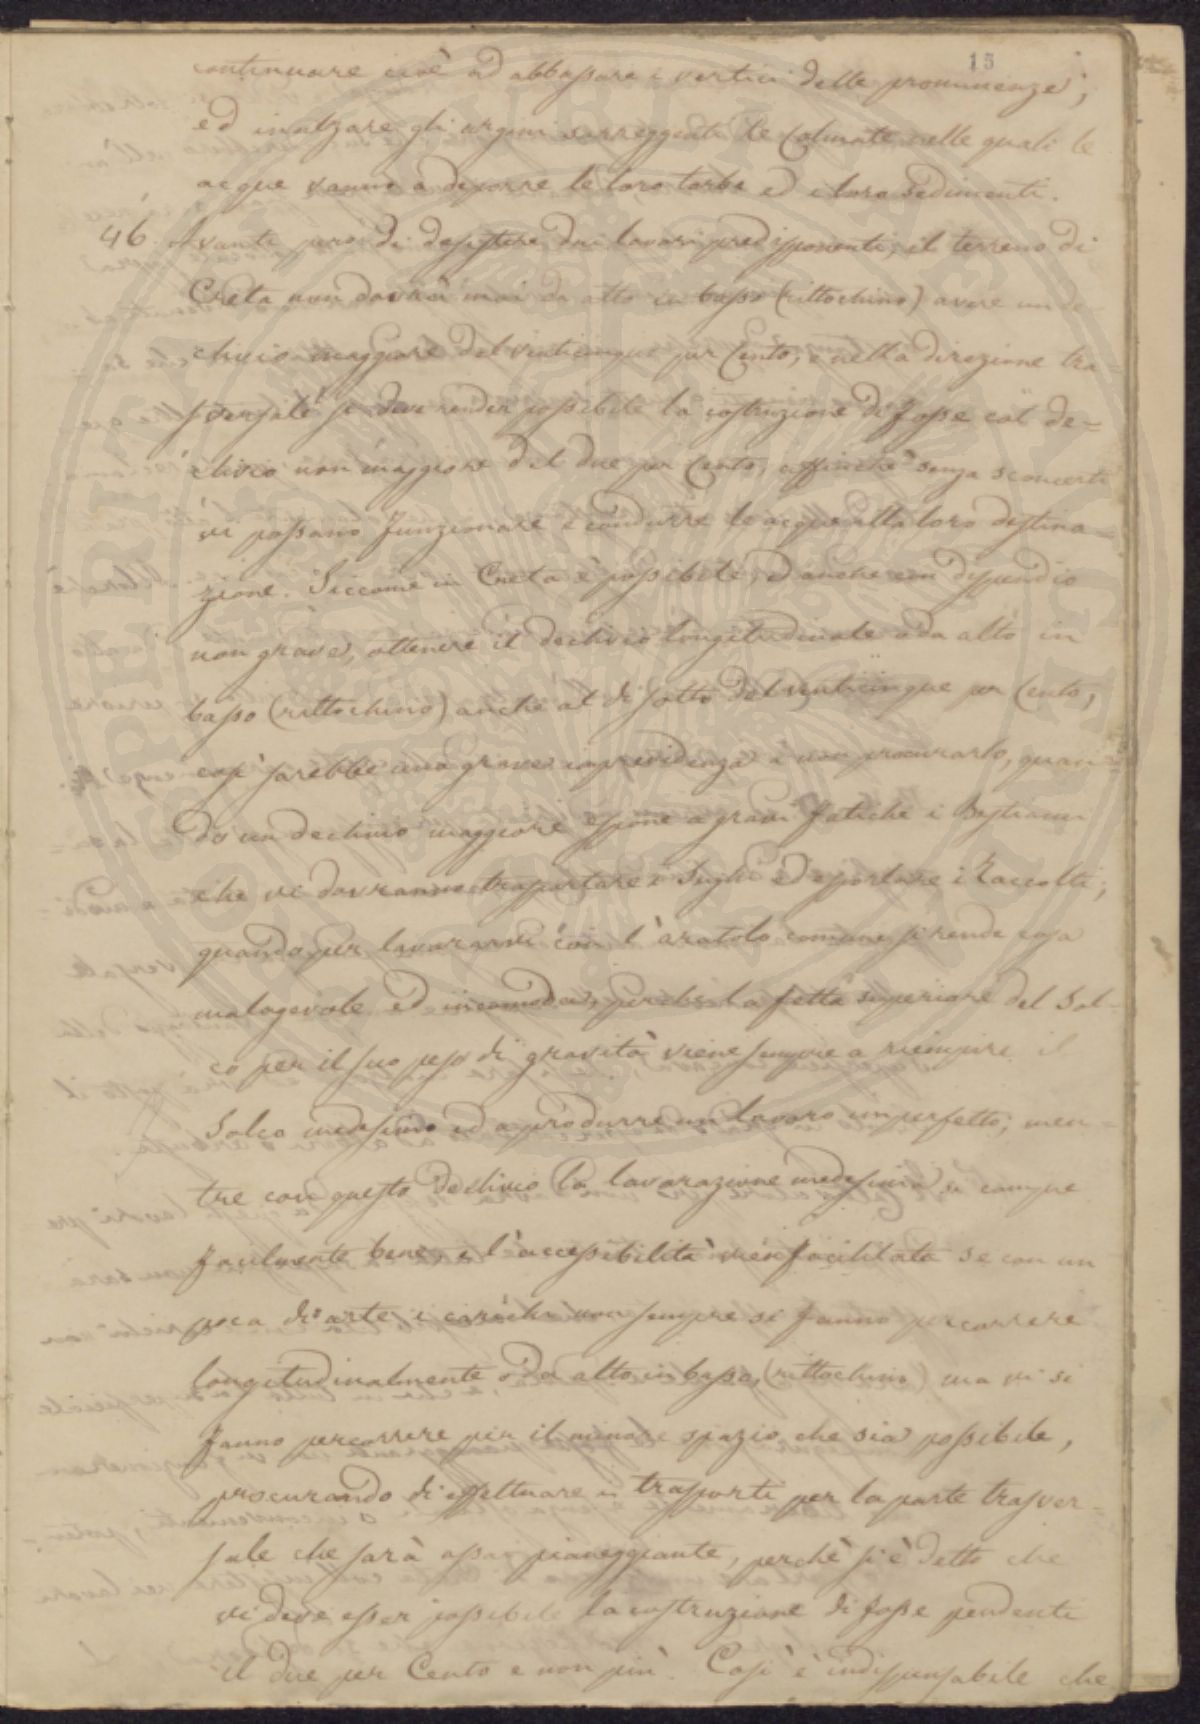 15
continuare cioè ad abbassare i vertici delle prominenze,
ed inalzare gli argini sorreggenti le Colmate nelle quali le
acque vanno a deporre le loro torbe ed i loro sedimenti.
46. Avanti però di desistere dai lavori predisponenti, il terreno di
Creta non dovrà mai da alto in basso (rittochino) avere un de-
clivio maggiore del venticinque per Cento, e nella direzione tra=
sversale si deve render possibile la costruzione di fosse col de-=
clivio non maggiore del due per Cento, affinchè senza sconcerti
vi possano funzionare e condurre le acque alla loro destina=
zione. Siccome in Creta è possibile, ed anche con dispendio
non grave, ottenere il declivio longitudinale o da alto in
basso (rittochino) anche al di sotto del venticinque per Cento,
così sarebbe una grave imprevidenza a non procurarlo, quan=
do un declivio maggiore espone a gravi fatiche i Bestiami
che vi dovranno trasportare i Sughi ed esportare i Raccolti;
quando per lavorarvi con l'aratolo comune si rende cosa
malagevole ed incomoda, perchè la fetta superiore del Sol-
co per il suo peso di gravità viene sempre a riempire il
Solco medesimo ed a produrre un lavoro imperfetto; men=
tre con questo declivio la lavorazione medesima si compie
facilmente bene, e l'accessibilità vien facilitata se con un
poca di arte i carichi non sempre si fanno percorrere
longitudinalmente o da alto in basso, (rittochino) ma vi si
fanno percorrere per il minore spazio che sia possibile,
procurando di effettuare i trasporti per la parte trasver=
sale che sarà assai pianeggiante, perchè si è detto che
vi deve esser possibile la costruzione di fosse pendenti
il due per Cento e non più. Così è indispensabile che